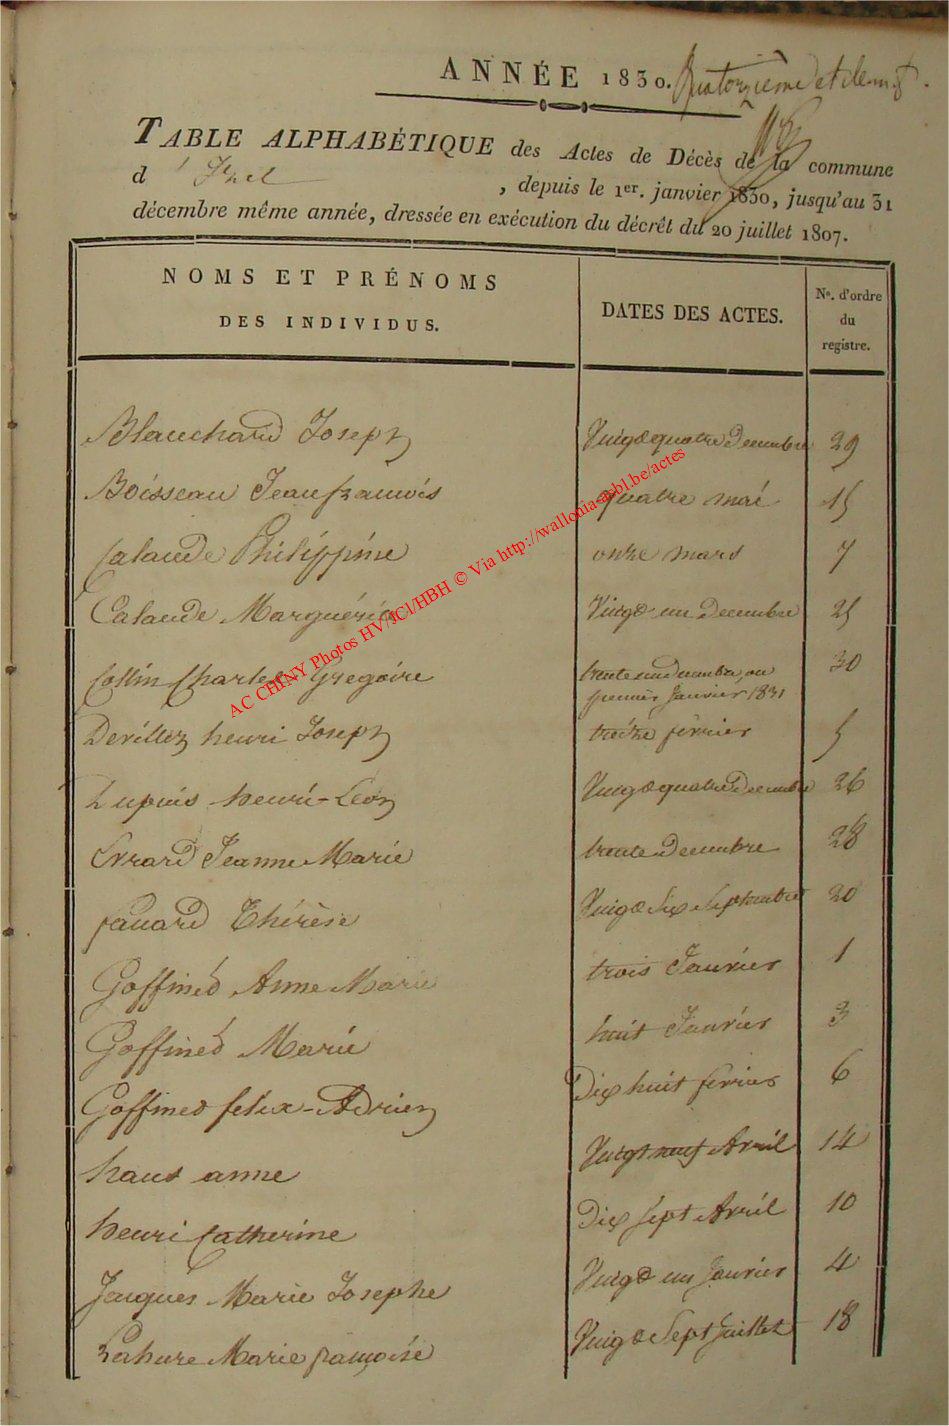 ANNÉE 1830. Quatorzième et dern.r
TABLE ALPHABÉTIQUE des Actes de Décès de la commune
d' Izel, depuis le 1er. janvier 1830, jusqu'au 31
décembre même année, dressée en exécution du décrêt du 20 juillet 1807.
NOMS ET PRÉNOMS DES INDIVIDUS. DATES DES ACTES. No. d'ordre du registre.
Blanchard Joseph Vingt quatre Decembre 29
Boisseau Jean françois quatre mai 15
Calande Philippine onze mars 7
Calande Marguérite Vingt un Decembre 25
Collin Charles Gregoire trente un Decembre, ou 30
premier Janvier 1831
Devillez henri Joseph treize février 5
Dupuis henri-Léon Vingt quatre Decembre 26
Evrard Jeanne Marie trente Decembre 28
fanard Thérèse Vingt Six Septembre 20
Goffinet Anne Marie trois Janvier 1
Goffinet Marie huit Janvier 3
Goffinet felix-Adrien Dix huit février 6
haus anne Vingt neuf Avril 14
henri Catherine Dix sept Avril 10
Jacques Marie Josephe Vingt un Janvier 4
Lahure Marie françoise Vingt Sept Juillet 18
AC CHINY Photos HV/JCl/HBH © Via http://wallonia-asbl.be/actes